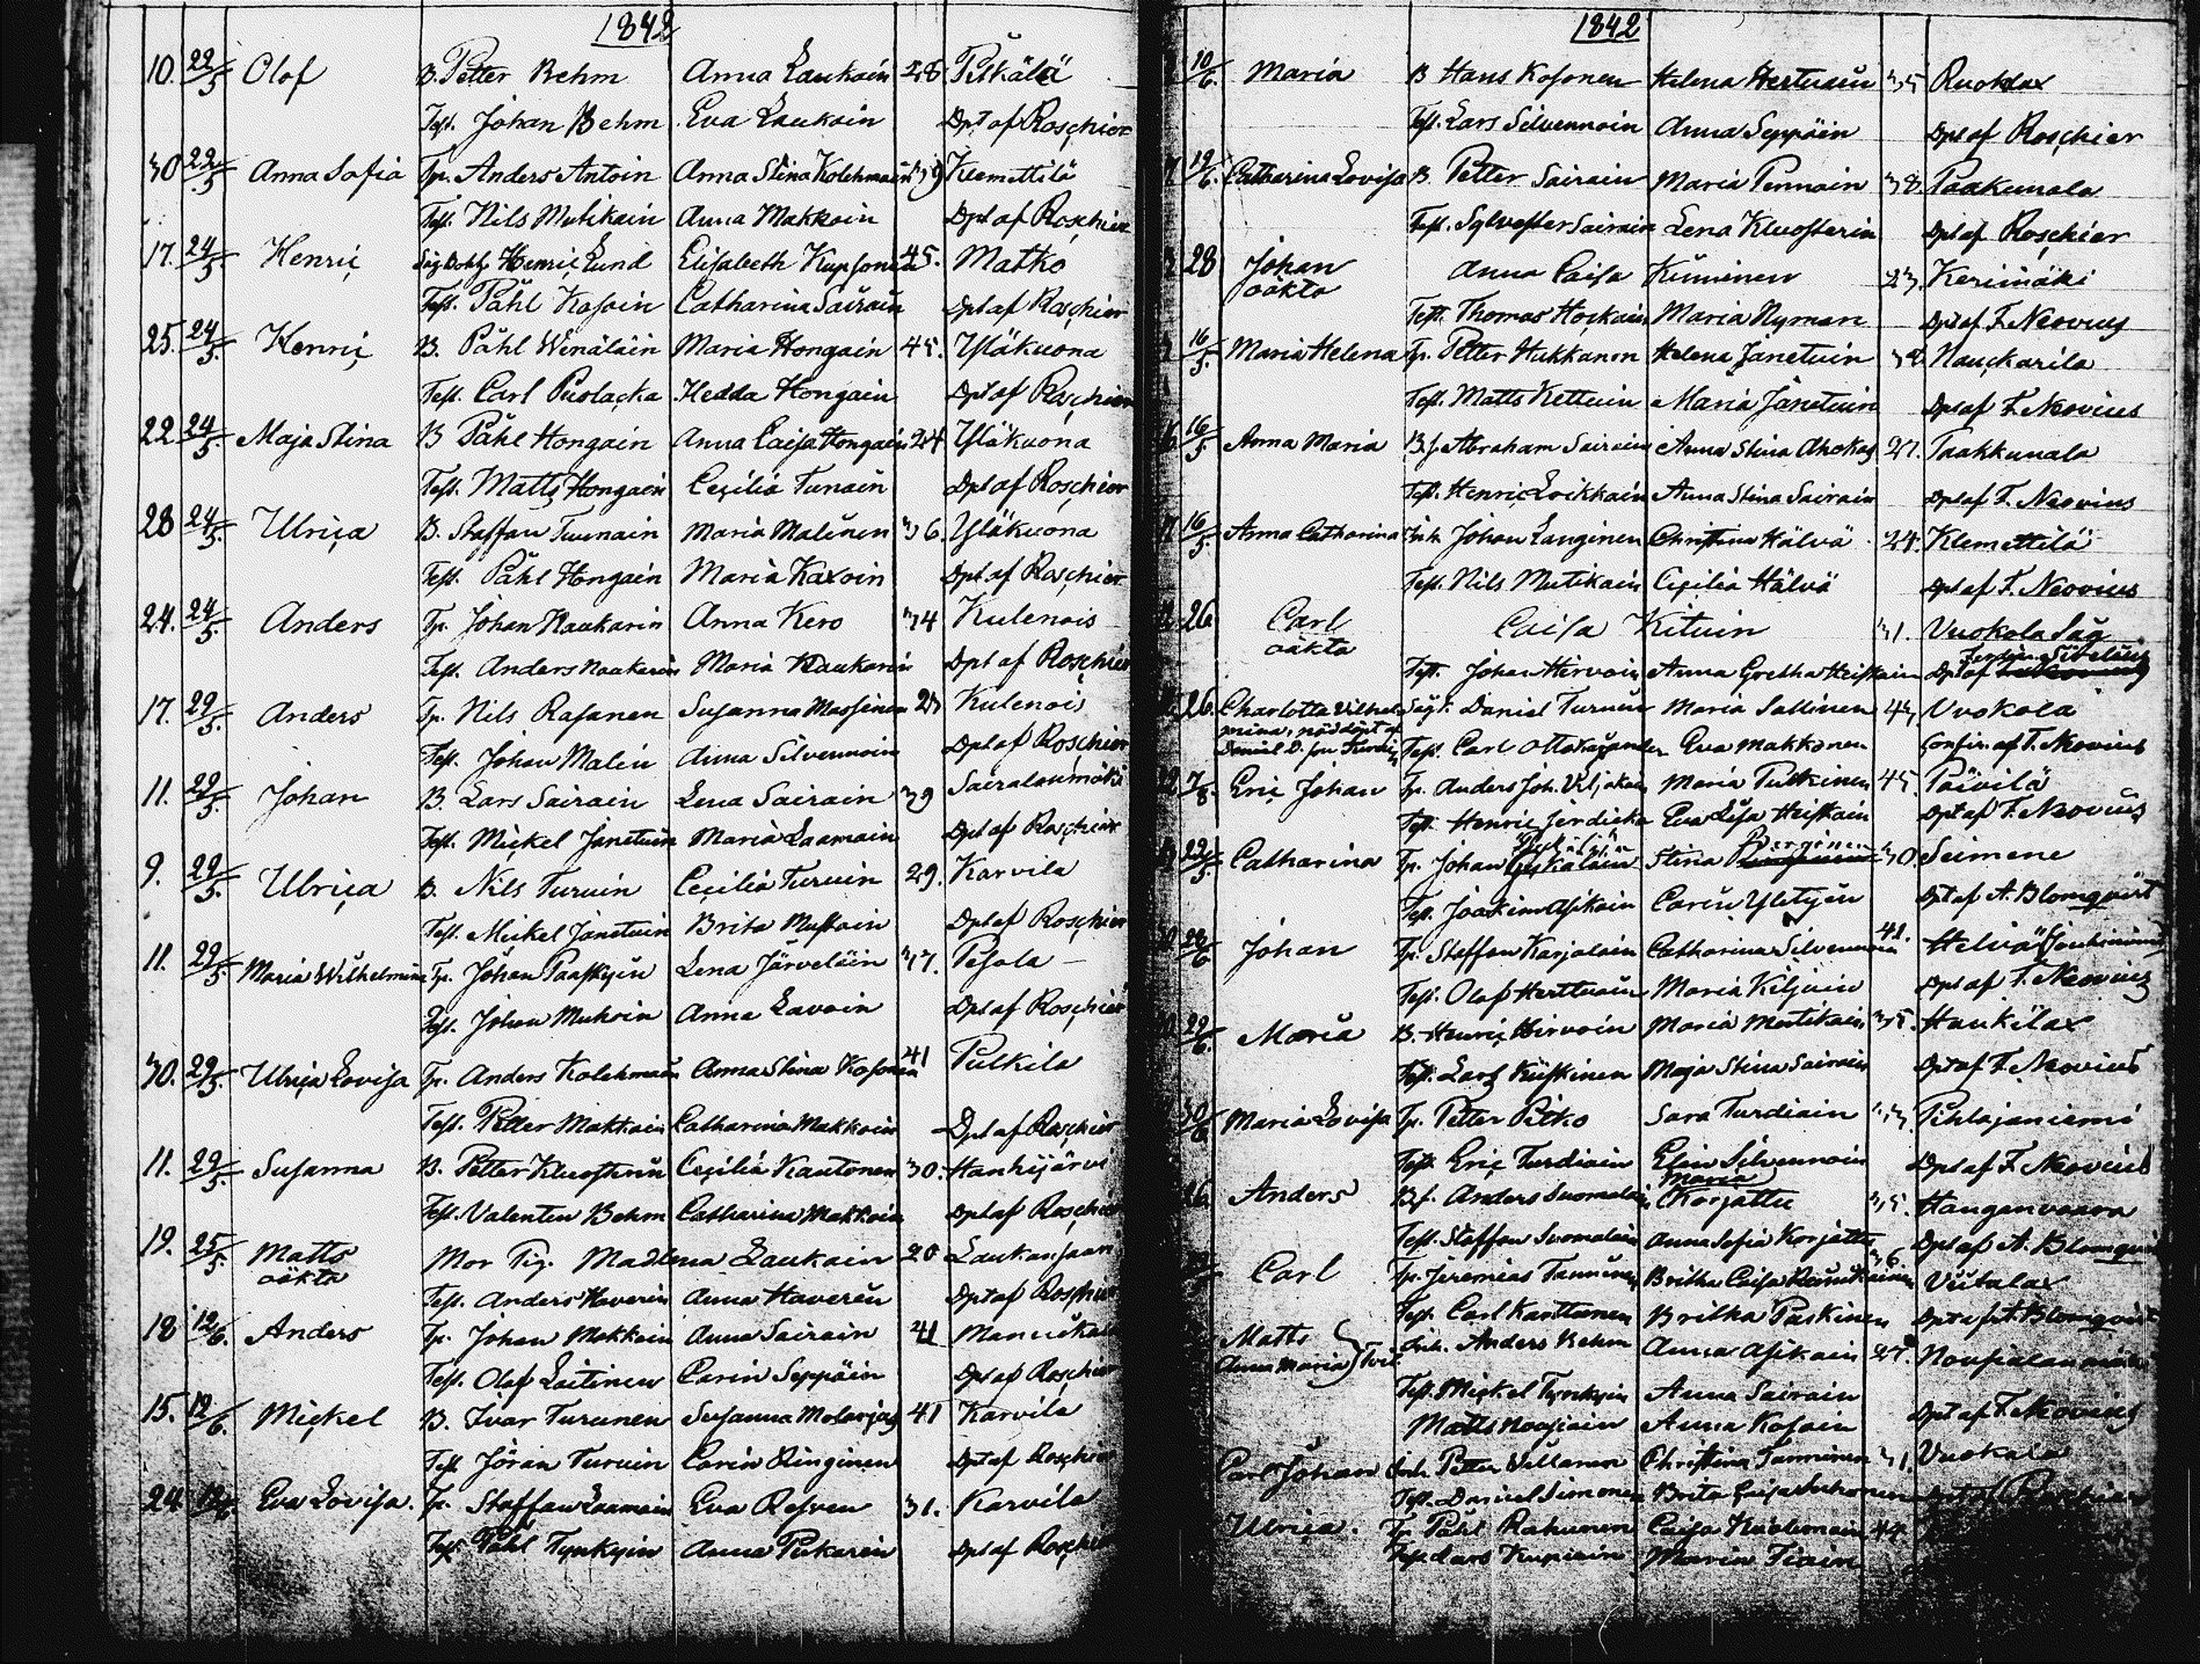 1842
10. 22/5 Olof B. Petter Behm Anna Laukain 28. Pitkälä
Test. Johan Behm Eva Laukain Dpt af Roschier
30 22/5 Anna Sofia Tp. Anders Antoin Anna Stina Kolehmain 39 Klemettilä
Test. Nils Mutikain Anna Makkoin Dpt af Roschier
17. 24/5 Henric Henric Lund Elisabeth Kupsonen 45. Matko
Test. Påhl Kosoin Catharina Sairain Dpt af Roschier
25. 24/5 Henric B. Påhl Winäläin Maria Hongain 45. Yläkuona
Test. Carl Puolacka Hedda Hongain Dpt af Roschier
22. 24/5 Maja Stina B Påhl Hongain Anna Caisa Hongain 24 Yläkuona
Test. Matts Hongain Cecilia Tunain Dpt af Roschier
28 24/5 Ulrica B. Staffan Tuunain Maria Malinen 36. Yläkuona
Test. Påhl Hongain Maria Kaxoin Dpt af Roschier
24. 24/5 Anders Tp. Johan Naukarin Anna Kero 34 Kulenois
Test. Anders Naukarin Maria Naukarin Dpt af Roschier
17. 29/5 Anders Tp. Nils Rasanen Susanna Massinen 23 Kulenois
Test. Johan Malin Anna Silvennoin Dpt af Roschier
11. 29/5 Johan B. Lars Sairain Lena Sairain 39 Sairalanmäki
Test. Mickel Jänetuin Maria Laamain Dpt af Roschier
9. 29/5 Ulrica B. Nils Turuin Cecilia Turuin 29. Karvila
Test. Mickel Jänetuin Brita Mustoin Dpt af Roschier
11. 29/5 Maria Wilhelmina Tp. Johan Paaskyin Lena Järveläin 37. Pesola
Test. Johan Muhoin Anna Lavoin Dpt af Roschier
30. 29/5 Ulrica Lovisa Tp. Anders Kolehmain Anna Stina Kosonen 41 Pulkila
Test. Petter Makkoin Catharina Makkoin Dpt af Roschier
11. 29/5 Susanna B. Petter Kluosterin Cecilia Kautonen 30. Hanhijärvi
Test. Valentin Behm Catharina Makkoin Dpt af Roschier
19. 25/5 Matts oäkta Mor Pig. Madlena Laukain 20 Laukansaari
Test. Anders Haverin Anna Haverin Dpt af Roschier
18 12/6. Anders Tp. Johan Makkoin Anna Sairain 41
Test. Olof Laitinen Carin Seppäin Dpt af Roschier
15. 12/6. Mickel B. Ivar Turunen Susanna Molarjas 41 Karvila
Test Jöran Turuin Carin Ringinen Dpt af Roschier
24 12/6 Eva Lovisa. Tp. Staffan Laamain Eva Resven 31. Karvila
Test Påhl Tynkyin Anna Pukarin Dpt af Roschier
1842
10/6. Maria B Hans Kosonen Helena Hertuain 35 Ruoklax
Test. Lars Silvennoin Anna Seppäin Dpt af Roschier
12/6. Catharina Lovisa B. Petter Sairain Maria Pennain 38. Paakunala
Test. Sylvester Sairain Lena Kluosterin Dpt af Roschier
28 Johan oäkta Anna Caisa Kiiminen 23. Kerimäki
Test. Thomas Hockain Maria Nyman Dpt af F. Neovius
16/5. Maria Helena Tp. Petter Hukkanen Helena Jänetuin Nauckarila
Test. Matts Kettuin Maria Jänetuin Dpt af F. Neovius
16/5 Anna Maria B.f. Abraham Sairain Anna Stina Ahokas 27. Paakkunala
Test. Henric Loikkain Anna Stina Sairain Dpt af F. Neovius
16/5. Anna Catharina Inh. Johan Langinen Christina Hälvä 24. Klemettilä
Test. Nils Mutikain Cecilia Hälvä Dpt af F. Neovius
26 Carl oäkta Caisa Kituin 31. Vuokala Såg
Test. Johan Hirvoin Anna Gretha Heiskain Dpt af
26. Charlotta Vilhelmina, nöddöpt af Daniel Turuin Maria Sallinen 43, Vuokala
Test. Carl Otto Eva Makkonen Confir. af F. Neovius
7/8. Eric Johan Tp. Anders Joh. Viljakain Maria Putkinen 45. Päivilä
Test. Henric Eva Lisa Heiskain Dpt af F. Neovius
22/5. Catharina Tp. Johan Stina 30. Seimene
Test. Joakim Asikain Carin Yletyin Dpt af A. Blomqvist
Johan Tp. Staffan Karjalain Catharina Silvennoin 41. Helvä
Test. Olof Herttuain Maria Kiljuin Dpt af F. Neovius
29/6. Maria B. Henric Hirvoin Maria Mutikain 35. Haukilax
Test. Lars Kuiskinen Maja Stina Sairain Dpt af F. Neovius
Maria Lovisa Tp. Petter Pitko Sara Turdiain Pihlajaniemi
Test. Eric Turdiain Elin Silvennoin Dpt af F. Neovius
26 Anders B.f. Anders Suomalain Maria Korjattu 35. Hanganvaara
Test. Staffan Suomalain Anna Sofia Korjattu Dpt af A. Blomqvist
Carl Tp. Jeremias Tanninen Britha Caisa 36 Viitalax
Test. Carl Karttunen Britha Paskinen Dpt af A. Blomqvist
Matts Anna Maria Tvil. Inh. Anders Behm Anna Asikain
Test. Mickel Tynkyin Anna Sairain
Matts Nousiain Anna Kosoin Dpt af F. Neovius
Carl Johan Inh. Petter Villanen Christina Tanninen 31. Vuokala
Test. Daniel Simonen Brita Caisa Dpt af Roschier
Ulrica. Tp. Påhl Rahunen Caisa 44.
Test. Lars Kupiain Maria Tiain